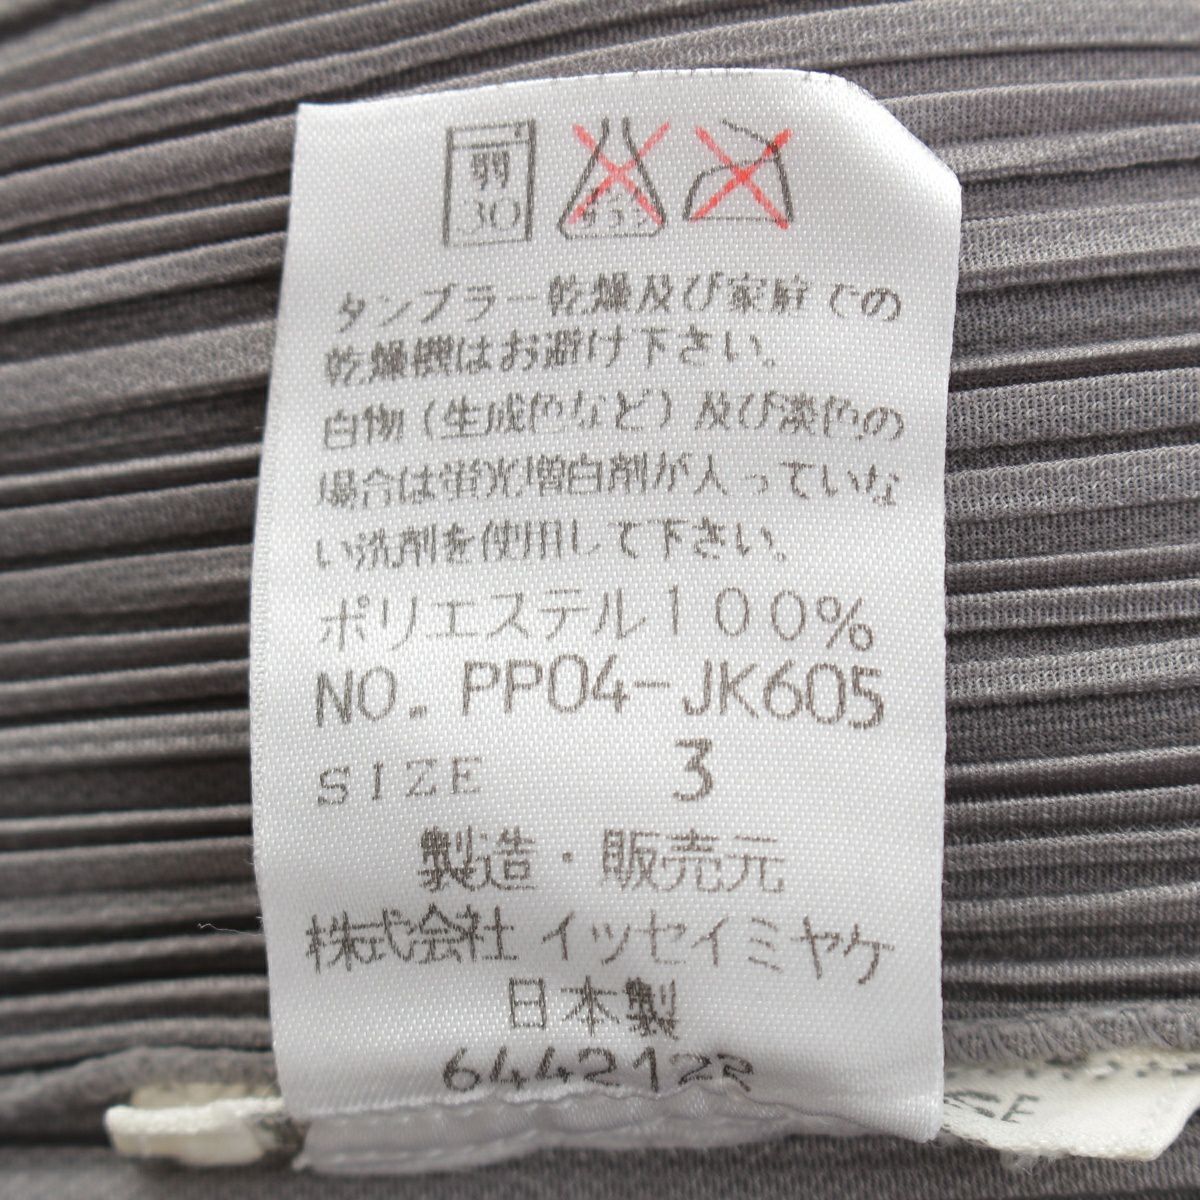 弱
30
エンソ
タンブラー乾燥及び家庭での
乾燥機はお避け下さい。
白物（生成色など）及び淡色の
場合は蛍光増白剤が入っていな
い洗剤を使用して下さい。
ポリエステル100%
NO. PP04-JK605
SIZE 3
製造・販売元
株式会社 イッセイミヤケ
日本製
6442122
SE